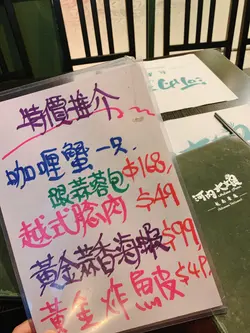 特價推介
咖哩蟹一只
跟蒜蓉包 $168
越式腍肉 $49
黃金蒜香海蝦 $99
黃金炸魚皮 $49